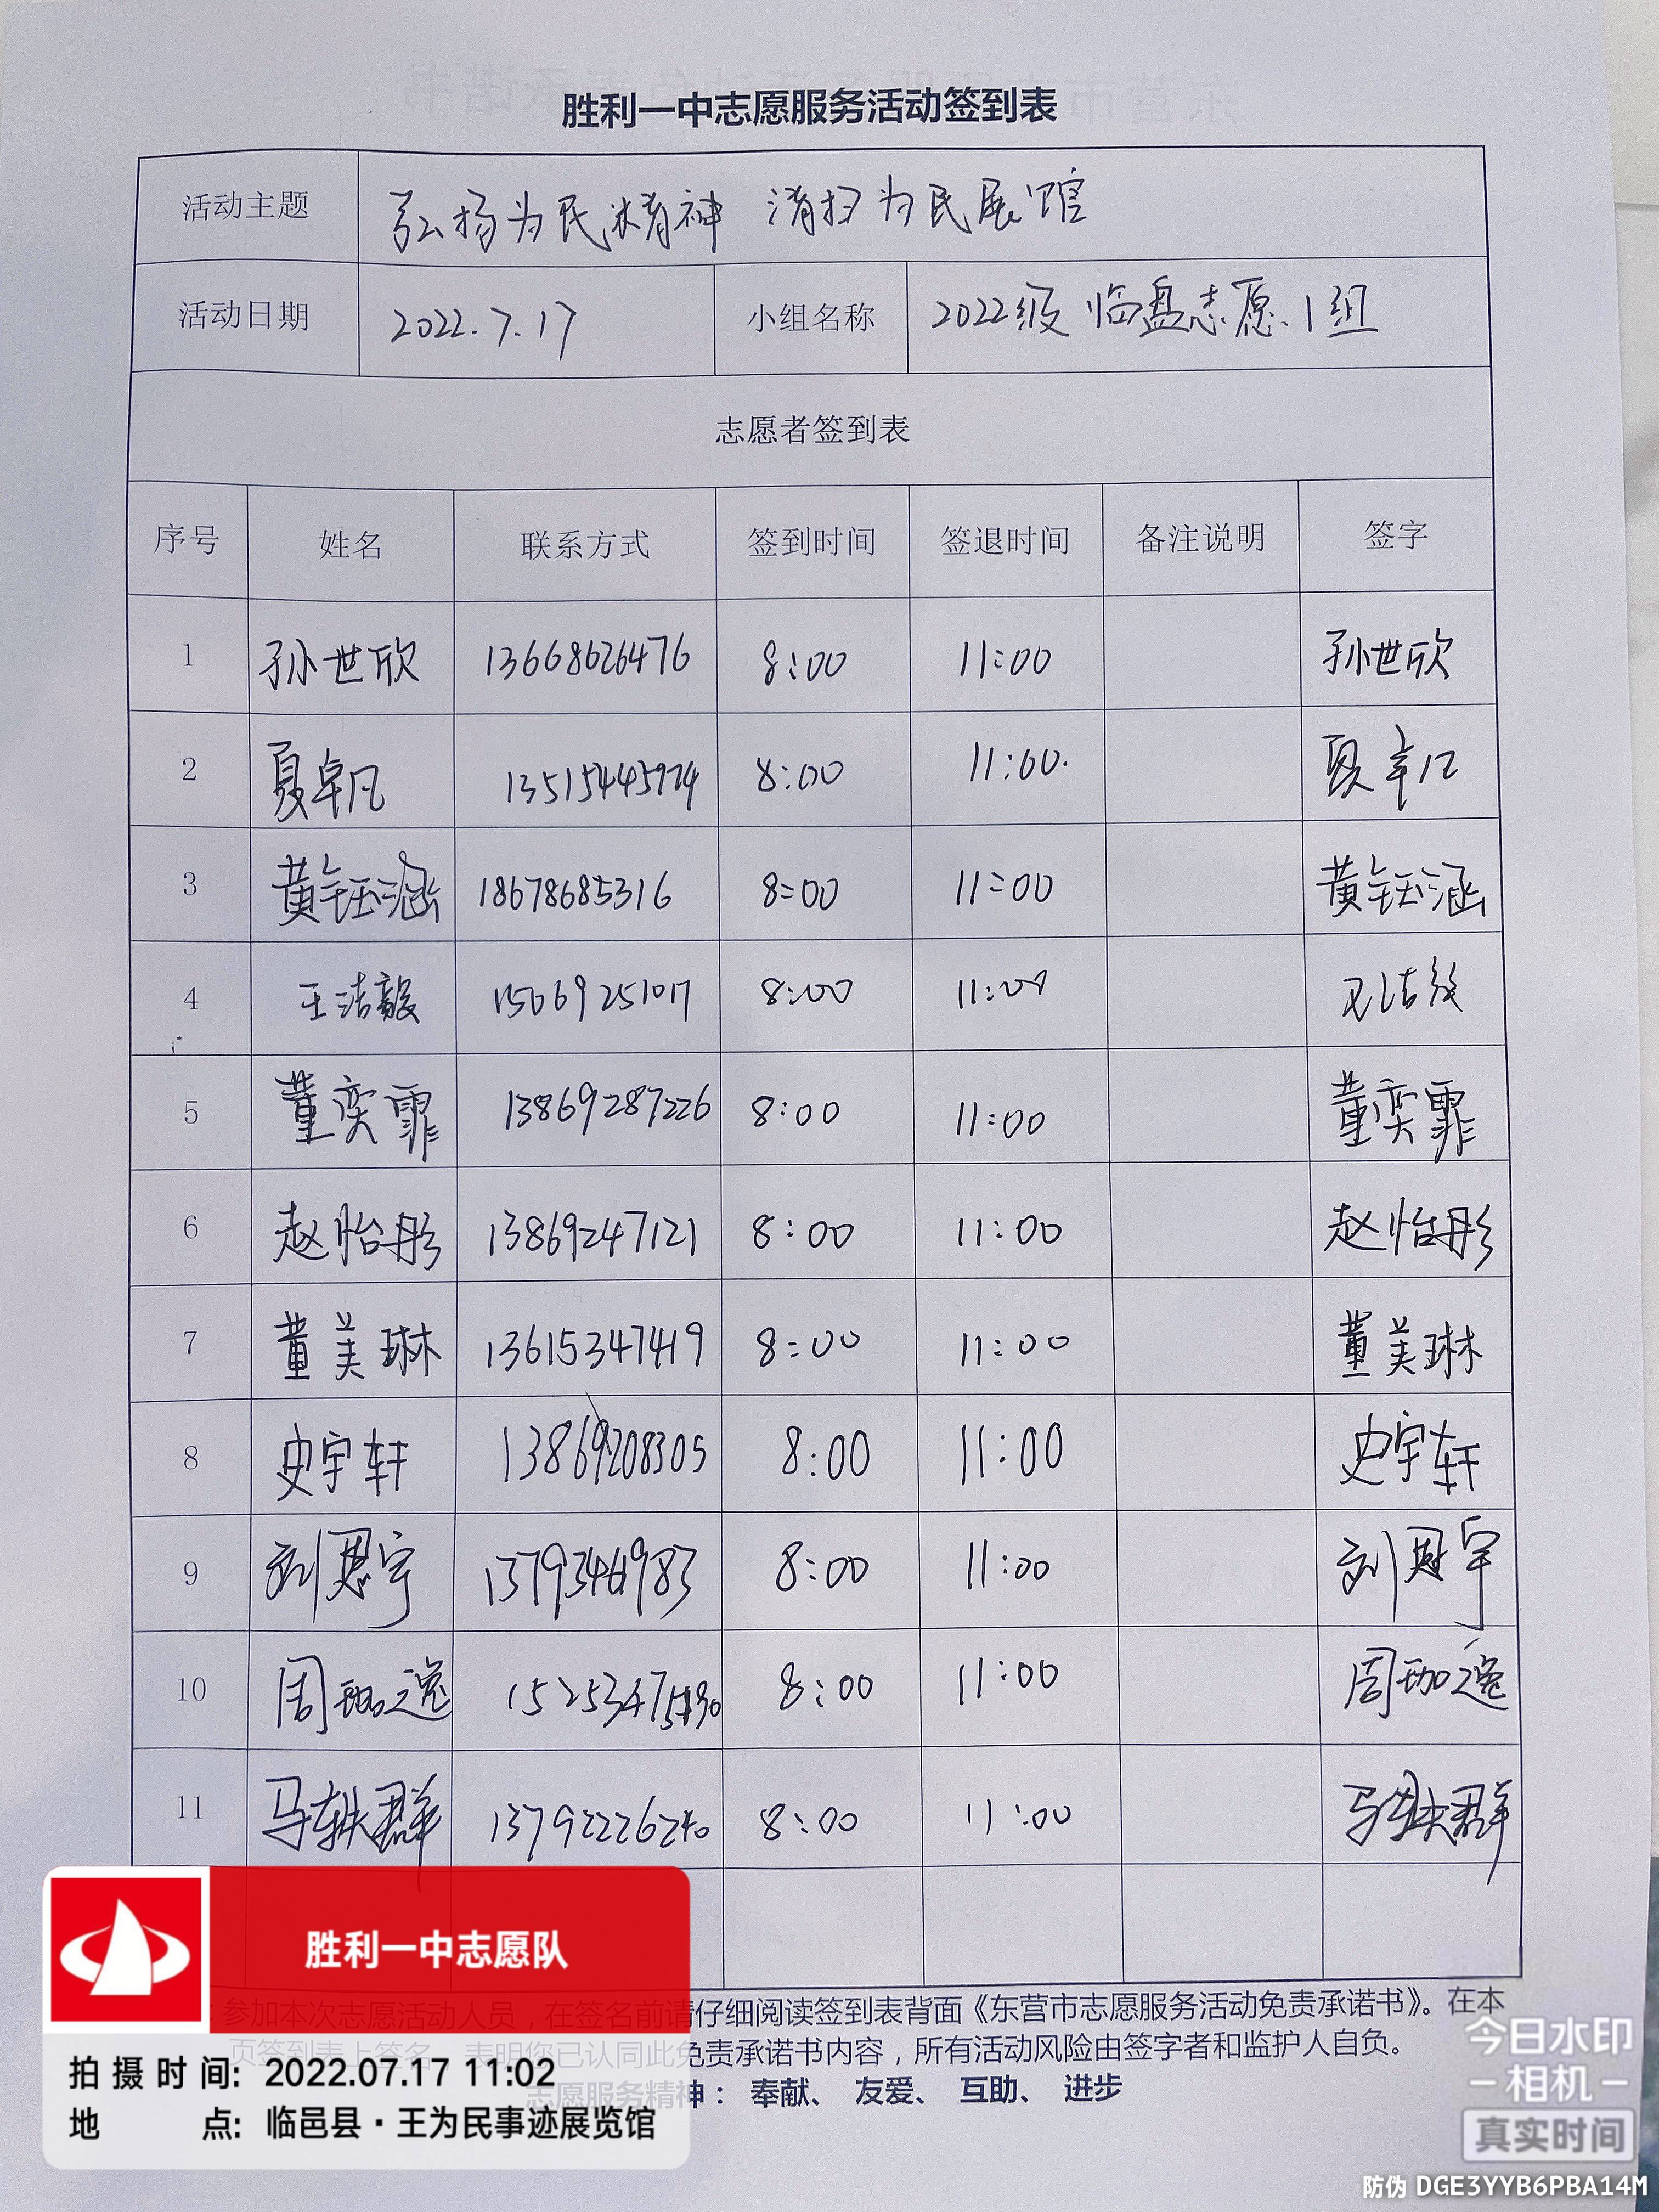 胜利一中志愿服务活动签到表
活动主题 弘扬为民精神 清扫为民展馆
活动日期 2022.7.17 小组名称 2022级临盘志愿1组
志愿者签到表
序号 姓名 联系方式 签到时间 签退时间 备注说明 签字
1 孙世欣 13668626476 8:00 11:00 孙世欣
2 夏卓凡 8:00 11:00. 夏卓凡
3 黄钰涵 18678685316 8:00 11:00 黄钰涵
4 王洁毅 8:00 11:00
5 董奕霏 13869287226 8:00 11:00 董奕霏
6 赵怡彤 13869247121 8:00 11:00 赵怡彤
7 董美琳 13615347419 8:00 11:00 董美琳
8 史宇轩 13869208305 8:00 11:00 史宇轩
9 刘恩宇 8:00 11:00 刘恩宇
10 周珈逸 8:00 11:00 周珈逸
11 马轶群 13792226240 8:00 11:00 马轶群
:参加本次志愿活动人员，在签名前请仔细阅读签到表背面《东营市志愿服务活动免责承诺书》。在本
页签到表上签名，表明您已认同此免责承诺书内容，所有活动风险由签字者和监护人自负。
志愿服务精神： 奉献、 友爱、 互助、 进步
胜利一中志愿队
拍摄时间: 2022.07.17 11:02
地 点: 临邑县·王为民事迹展览馆
今日水印
相机
真实时间
防伪 DGE3YYB6PBA14M